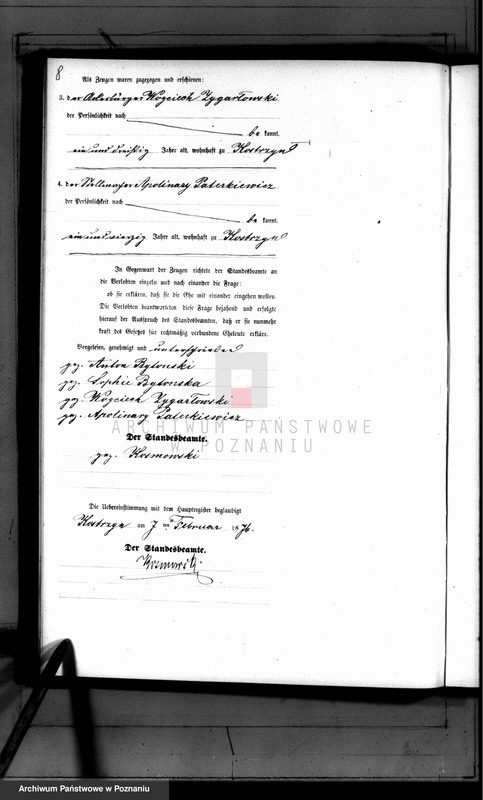 8
Als Zeugen waren zugezogen und erschienen:
3. der Ackerbürger Woyciech Zygarłowski
der Persönlichkeit nach
be kannt,
ein und dreißig Jahre alt, wohnhaft zu Kostrzyn
4. der Stellmacher Apolinary Paterkiewicz
der Persönlichkeit nach
be kannt,
ein und vierzig Jahre alt, wohnhaft zu Kostrzyn
In Gegenwart der Zeugen richtete der Standesbeamte an
die Verlobten einzeln und nach einander die Frage:
ob sie erklären, daß sie die Ehe mit einander eingehen wollen.
Die Verlobten beantworteten diese Frage bejahend und erfolgte
hierauf der Ausspruch des Standesbeamten, daß er sie nunmehr
kraft des Gesetzes für rechtmäßig verbundene Eheleute erkläre.
Vorgelesen, genehmigt und unterschrieben
gez. Anton Rytonski
gez. Sophie Bytonska
gez. Woyciech Zygarłowski
gez. Apolinary Paterkiewicz
ARCHIWUM PAŃSTWOWE
W POZNANIU
Der Standesbeamte.
gez. Kosmowski
Die Uebereinstimmung mit dem Hauptregister beglaubigt
Kostrzyn am 7 ten Februar 1876.
Der Standesbeamte.
Kosmowski.
Archiwum Państwowe w Poznaniu